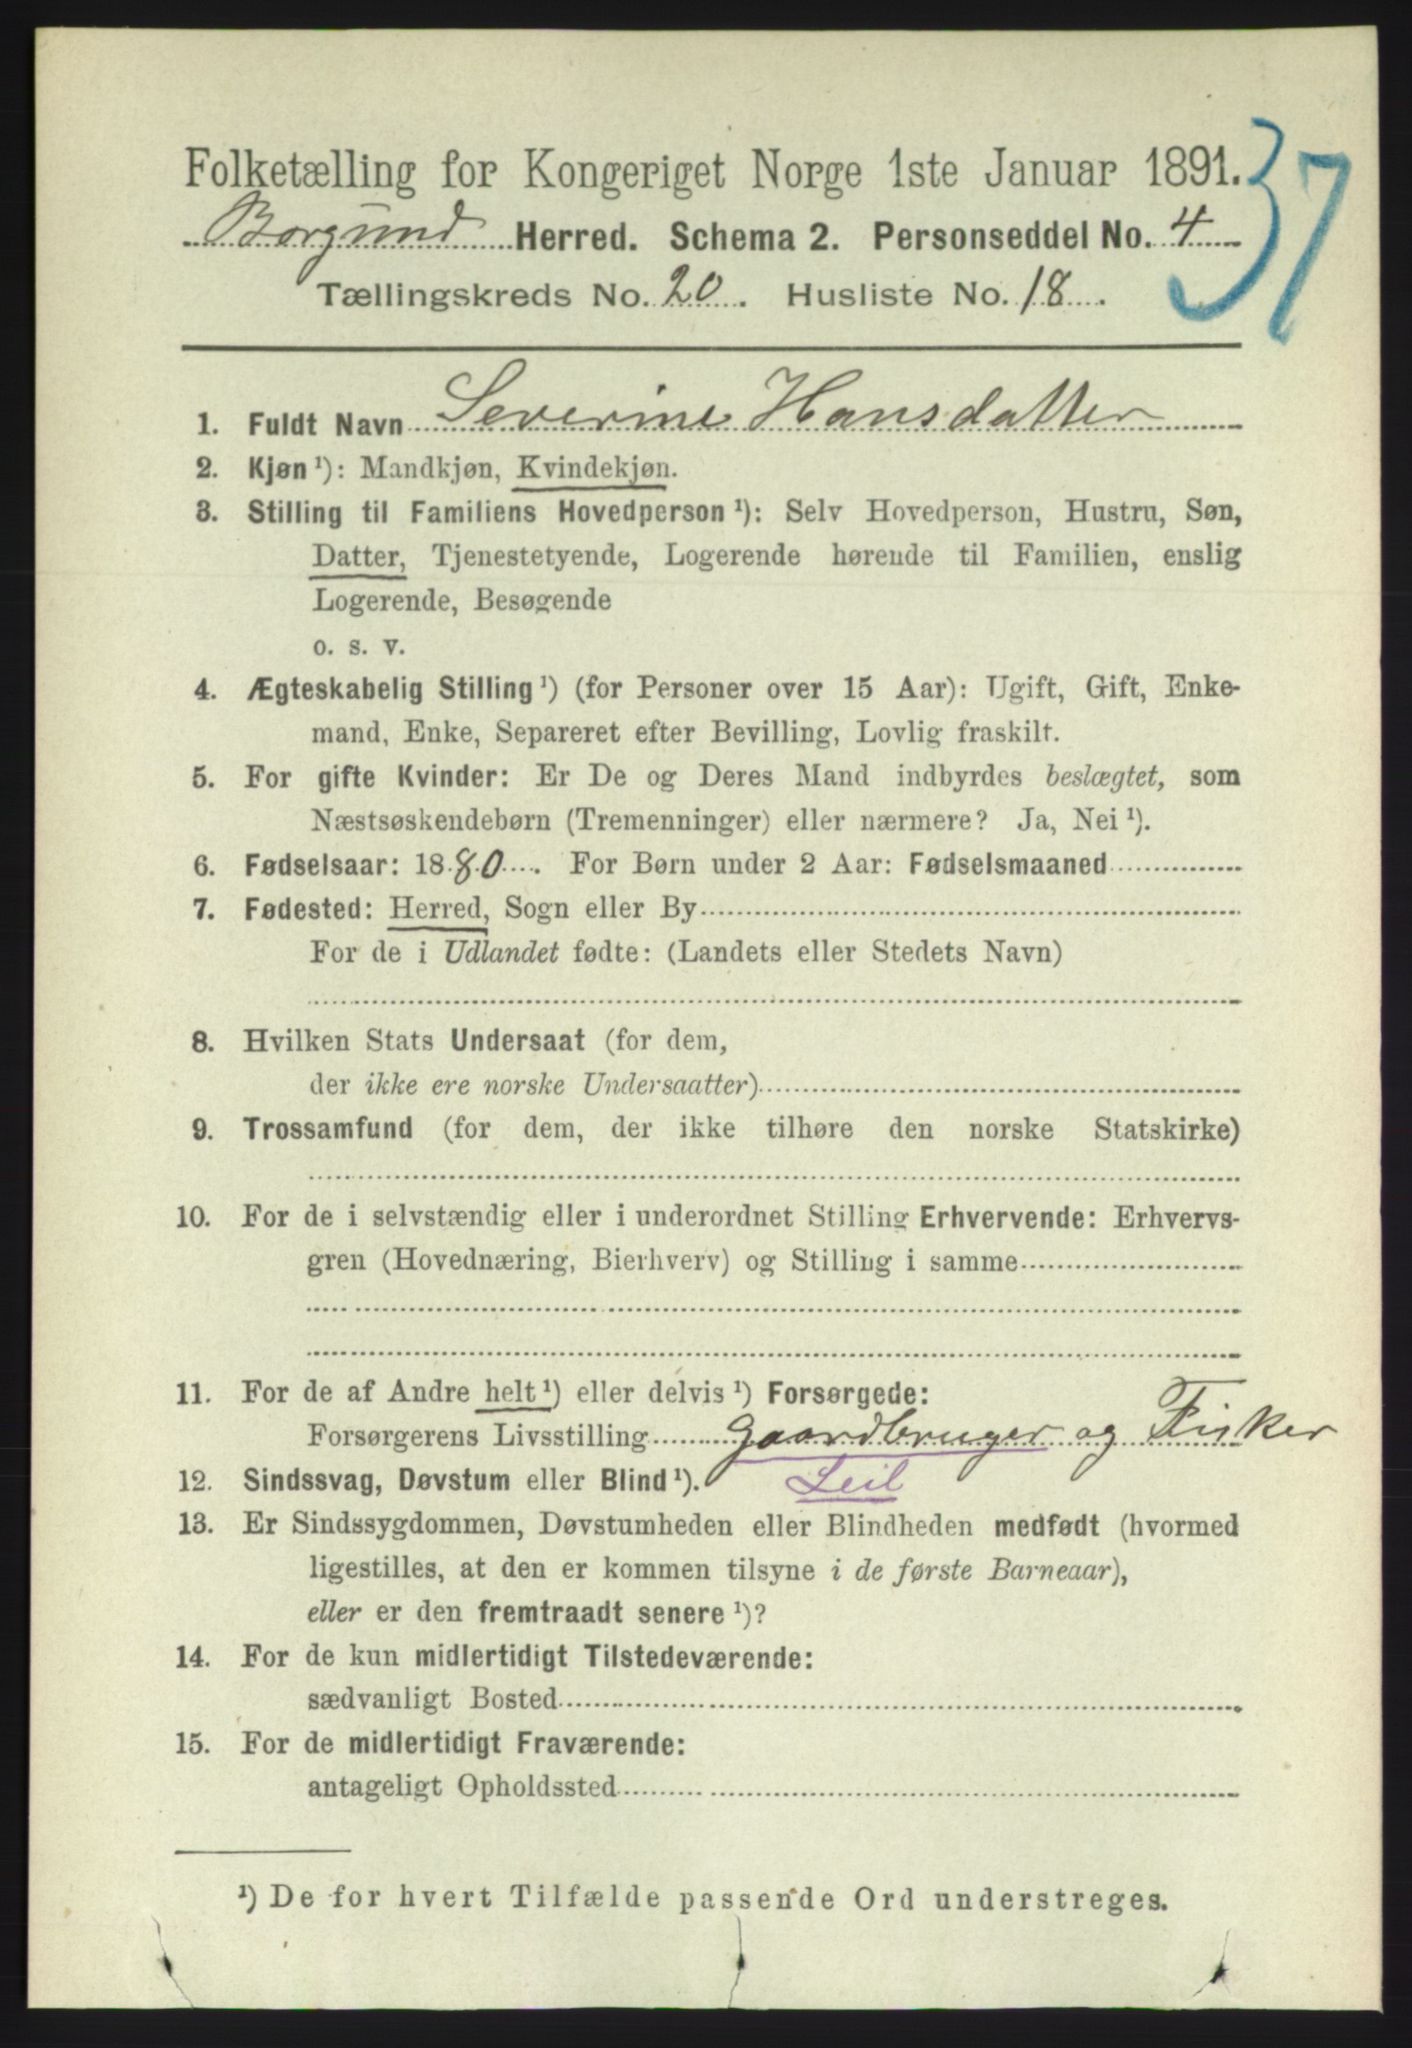 Folketælling for Kongeriget Norge 1ste Januar 1891.
37
Borgund Herred. Schema 2. Personseddel No. 4
Tællingskreds No. 20. Husliste No. 18.
1. Fuldt Navn Severine Hansdatter
2. Kjøn ¹): Mandkjøn, Kvindekjøn.
3. Stilling til Familiens Hovedperson ¹): Selv Hovedperson, Hustru, Søn,
Datter, Tjenestetyende, Logerende hørende til Familien, enslig
Logerende, Besøgende
o. s. v.
4. Ægteskabelig Stilling ¹) (for Personer over 15 Aar): Ugift, Gift, Enke-
mand, Enke, Separeret efter Bevilling, Lovlig fraskilt.
5. For gifte Kvinder: Er De og Deres Mand indbyrdes beslægtet, som
Næstsøskendebørn (Tremenninger) eller nærmere? Ja, Nei ¹).
6. Fødselsaar: 1880. For Børn under 2 Aar: Fødselsmaaned
7. Fødested: Herred, Sogn eller By
For de i Udlandet fødte: (Landets eller Stedets Navn)
8. Hvilken Stats Undersaat (for dem,
der ikke ere norske Undersaatter)
9. Trossamfund (for dem, der ikke tilhøre den norske Statskirke)
10. For de i selvstændig eller i underordnet Stilling Erhvervende: Erhvervs-
gren (Hovednæring, Bierhverv) og Stilling i samme
11. For de af Andre helt ¹) eller delvis ¹) Forsørgede:
Forsørgerens Livsstilling Gaardbruger og Fisker
12. Sindssvag, Døvstum eller Blind ¹). Leil
13. Er Sindssygdommen, Døvstumheden eller Blindheden medfødt (hvormed
ligestilles, at den er kommen tilsyne i de første Barneaar),
eller er den fremtraadt senere ¹)?
14. For de kun midlertidigt Tilstedeværende:
sædvanligt Bosted
15. For de midlertidigt Fraværende:
antageligt Opholdssted
¹) De for hvert Tilfælde passende Ord understreges.